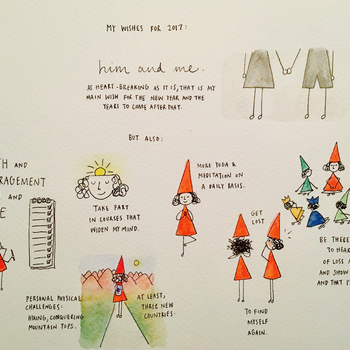 MY WISHES FOR 2017:
him and me.
AS HEART-BREAKING AS IT IS, THAT IS MY
MAIN WISH FOR THE NEW YEAR AND THE
YEARS TO COME AFTER THAT.
BUT ALSO:
TH AND
RAGEMENT
AND
E
TAKE PART
IN COURSES THAT
WIDEN MY MIND.
MORE YOGA &
MEDITATION ON
A DAILY BASIS.
GET
LOST
TO FIND
MYSELF
AGAIN.
BE THERE
TO HEAR
OF LOSS A
AND SHOW
AND THAT I
PERSONAL PHYSICAL
CHALLENGES:
HIKING, CONQUERING
MOUNTAIN TOPS.
AT LEAST,
THREE NEW
COUNTRIES.